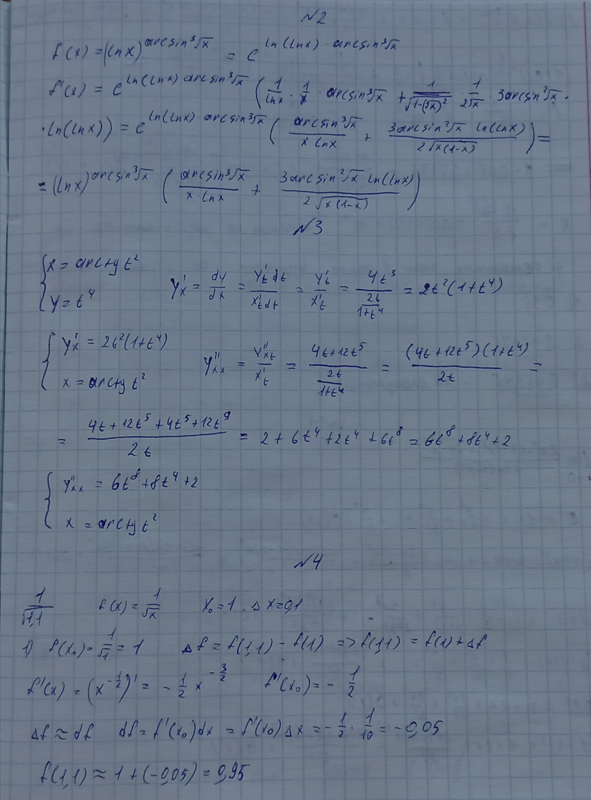 №2
f(x) = (ln x)^{arcsin³√x} = e^{ln(ln x) · arcsin³√x}
f'(x) = e^{ln(ln x) · arcsin³√x} (1/(ln x) · 1/x · arcsin³√x + 1/√(1-(√x)²) · 1/(2√x) · 3arcsin²√x ·
· ln(ln x)) = e^{ln(ln x) · arcsin³√x} (arcsin³√x/(x ln x) + 3arcsin²√x ln(ln x)/(2√(x(1-x)))) =
= (ln x)^{arcsin³√x} (arcsin³√x/(x · ln x) + 3arcsin²√x ln(ln x)/(2√(x(1-x))))
№3
{ x = arctg t²
y = t⁴
y'ₓ = dy/dx = y'ₜ dt/(x'ₜ dt) = y'ₜ/x'ₜ = 4t³/(2t/(1+t⁴)) = 2t²(1+t⁴)
{ y'ₓ = 2t²(1+t⁴)
x = arctg t²
y''ₓₓ = y''ₓₜ/x'ₜ = (4t+12t⁵)/(2t/(1+t⁴)) = (4t+12t⁵)(1+t⁴)/(2t) =
= (4t+12t⁵+4t⁵+12t⁹)/(2t) = 2+6t⁴+2t⁴+6t⁸ = 6t⁸+8t⁴+2
{ y''ₓₓ = 6t⁸+8t⁴+2
x = arctg t²
№4
1/√1,1 f(x) = 1/√x x₀=1 Δx=0,1
1) f(x₀) = 1/√1 = 1 Δf = f(1,1) - f(1) => f(1,1) = f(1) + Δf
f'(x) = (x^{-1/2})' = -1/2 x^{-3/2} f'(x₀) = -1/2
Δf ≈ df df = f'(x₀)dx = f'(x₀)Δx = -1/2 · 1/10 = -0,05
f(1,1) ≈ 1 + (-0,05) = 0,95